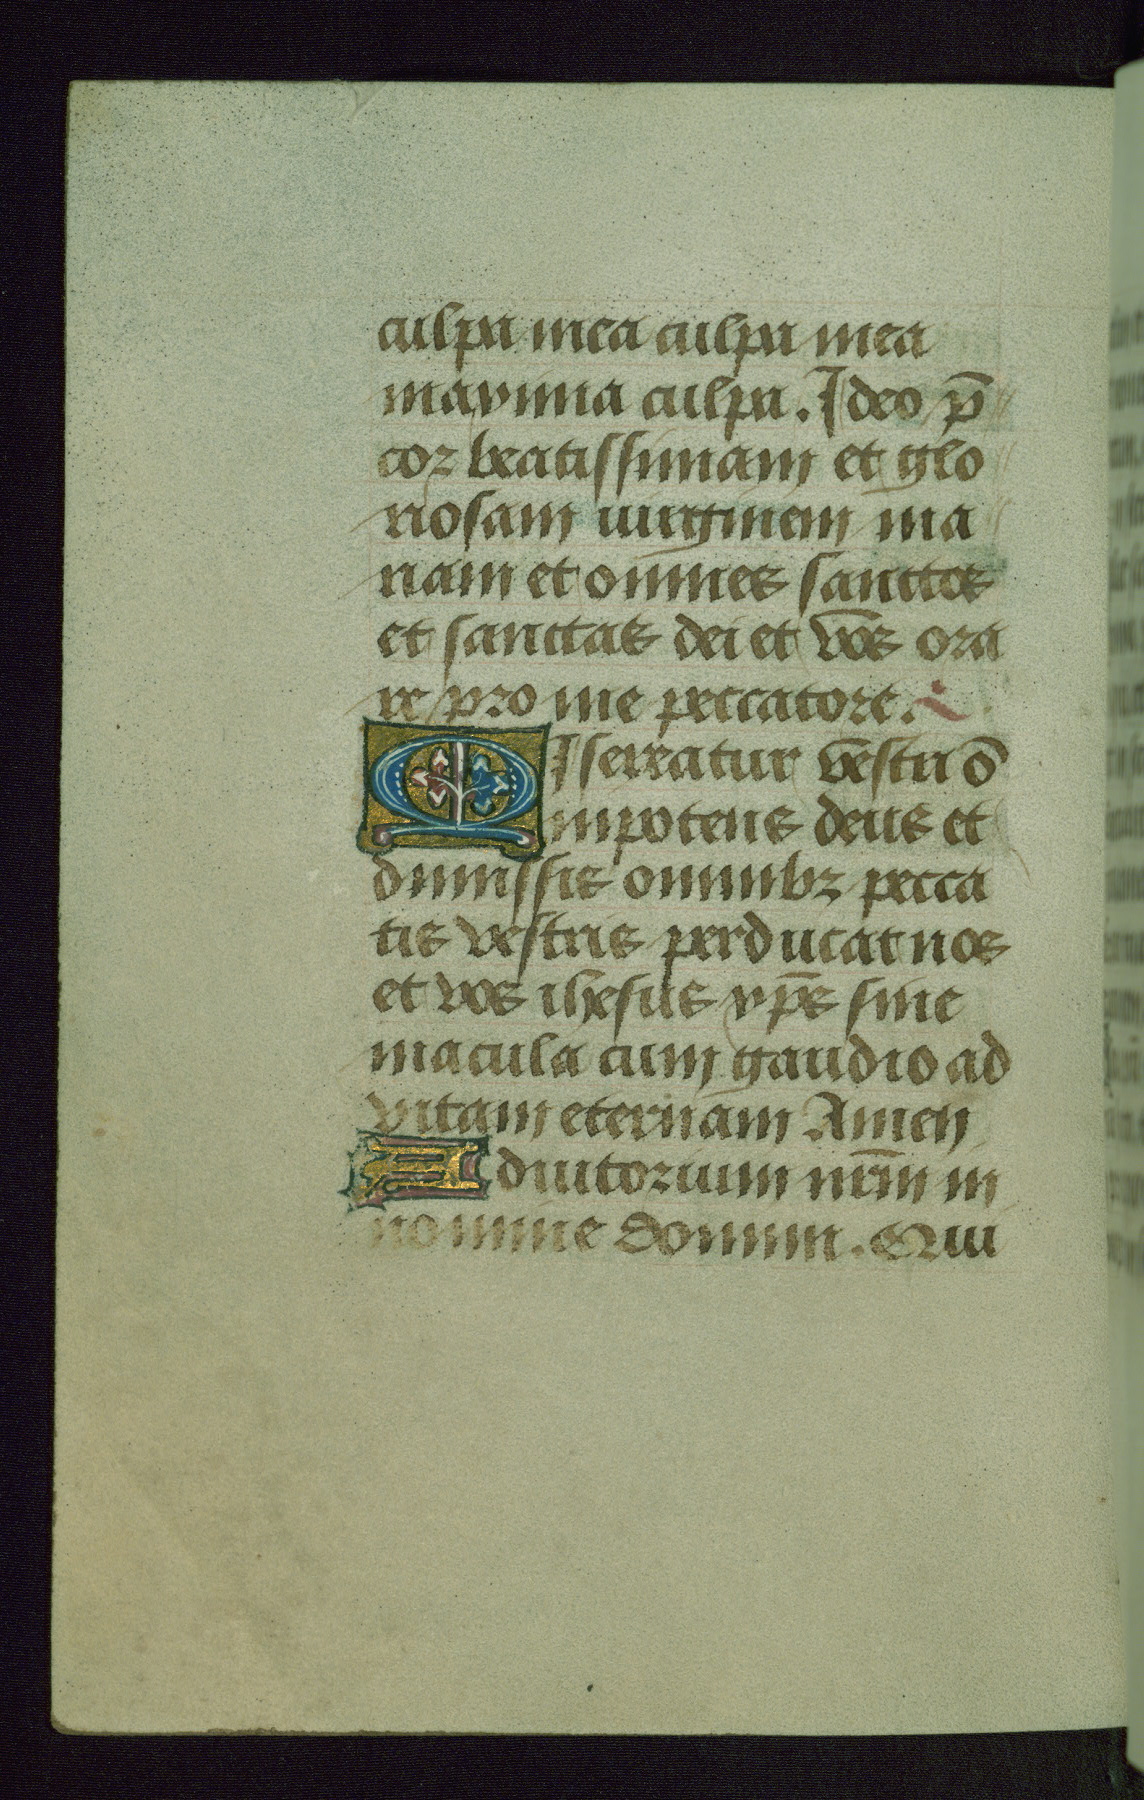 culpa mea culpa mea
maxima culpa. Ideo p̄
cor beatissimam et glo
riosam uirginem ma
riam et omnes sanctos
et sanctas dei et vōs ora
re pro me peccatore. i
Misereatur vēstri ō
mnipotens deus et
dimissis omnibꝫ pecca
tis vestris perducat nos
et vos ihesus xp̄s sine
macula cum gaudio ad
vitam eternam Amen
Adiutorium nr̄m in
nomine Domini. Qui